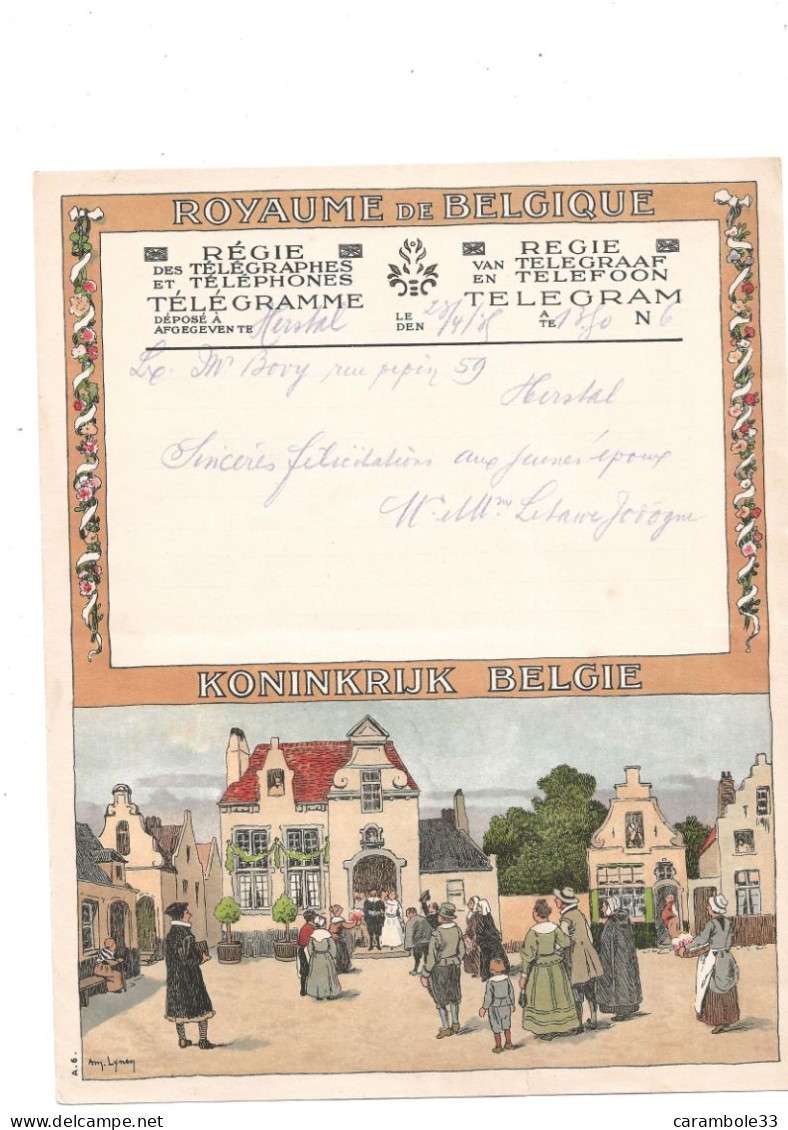 ROYAUME DE BELGIQUE
RÉGIE
DES TÉLÉGRAPHES
ET TÉLÉPHONES
TÉLÉGRAMME
REGIE
VAN TELEGRAAF
EN TELEFOON
TELEGRAM
DÉPOSÉ À
AFGEGEVEN TE Herstal LE
DEN A
TE N 6
Mr Bovy, rue pepin 59
Herstal
Sincères félicitations aux jeunes époux
Mr et Mme
KONINKRIJK BELGIE
A.6.
Am. Lynen
delcampe.net
carambole33